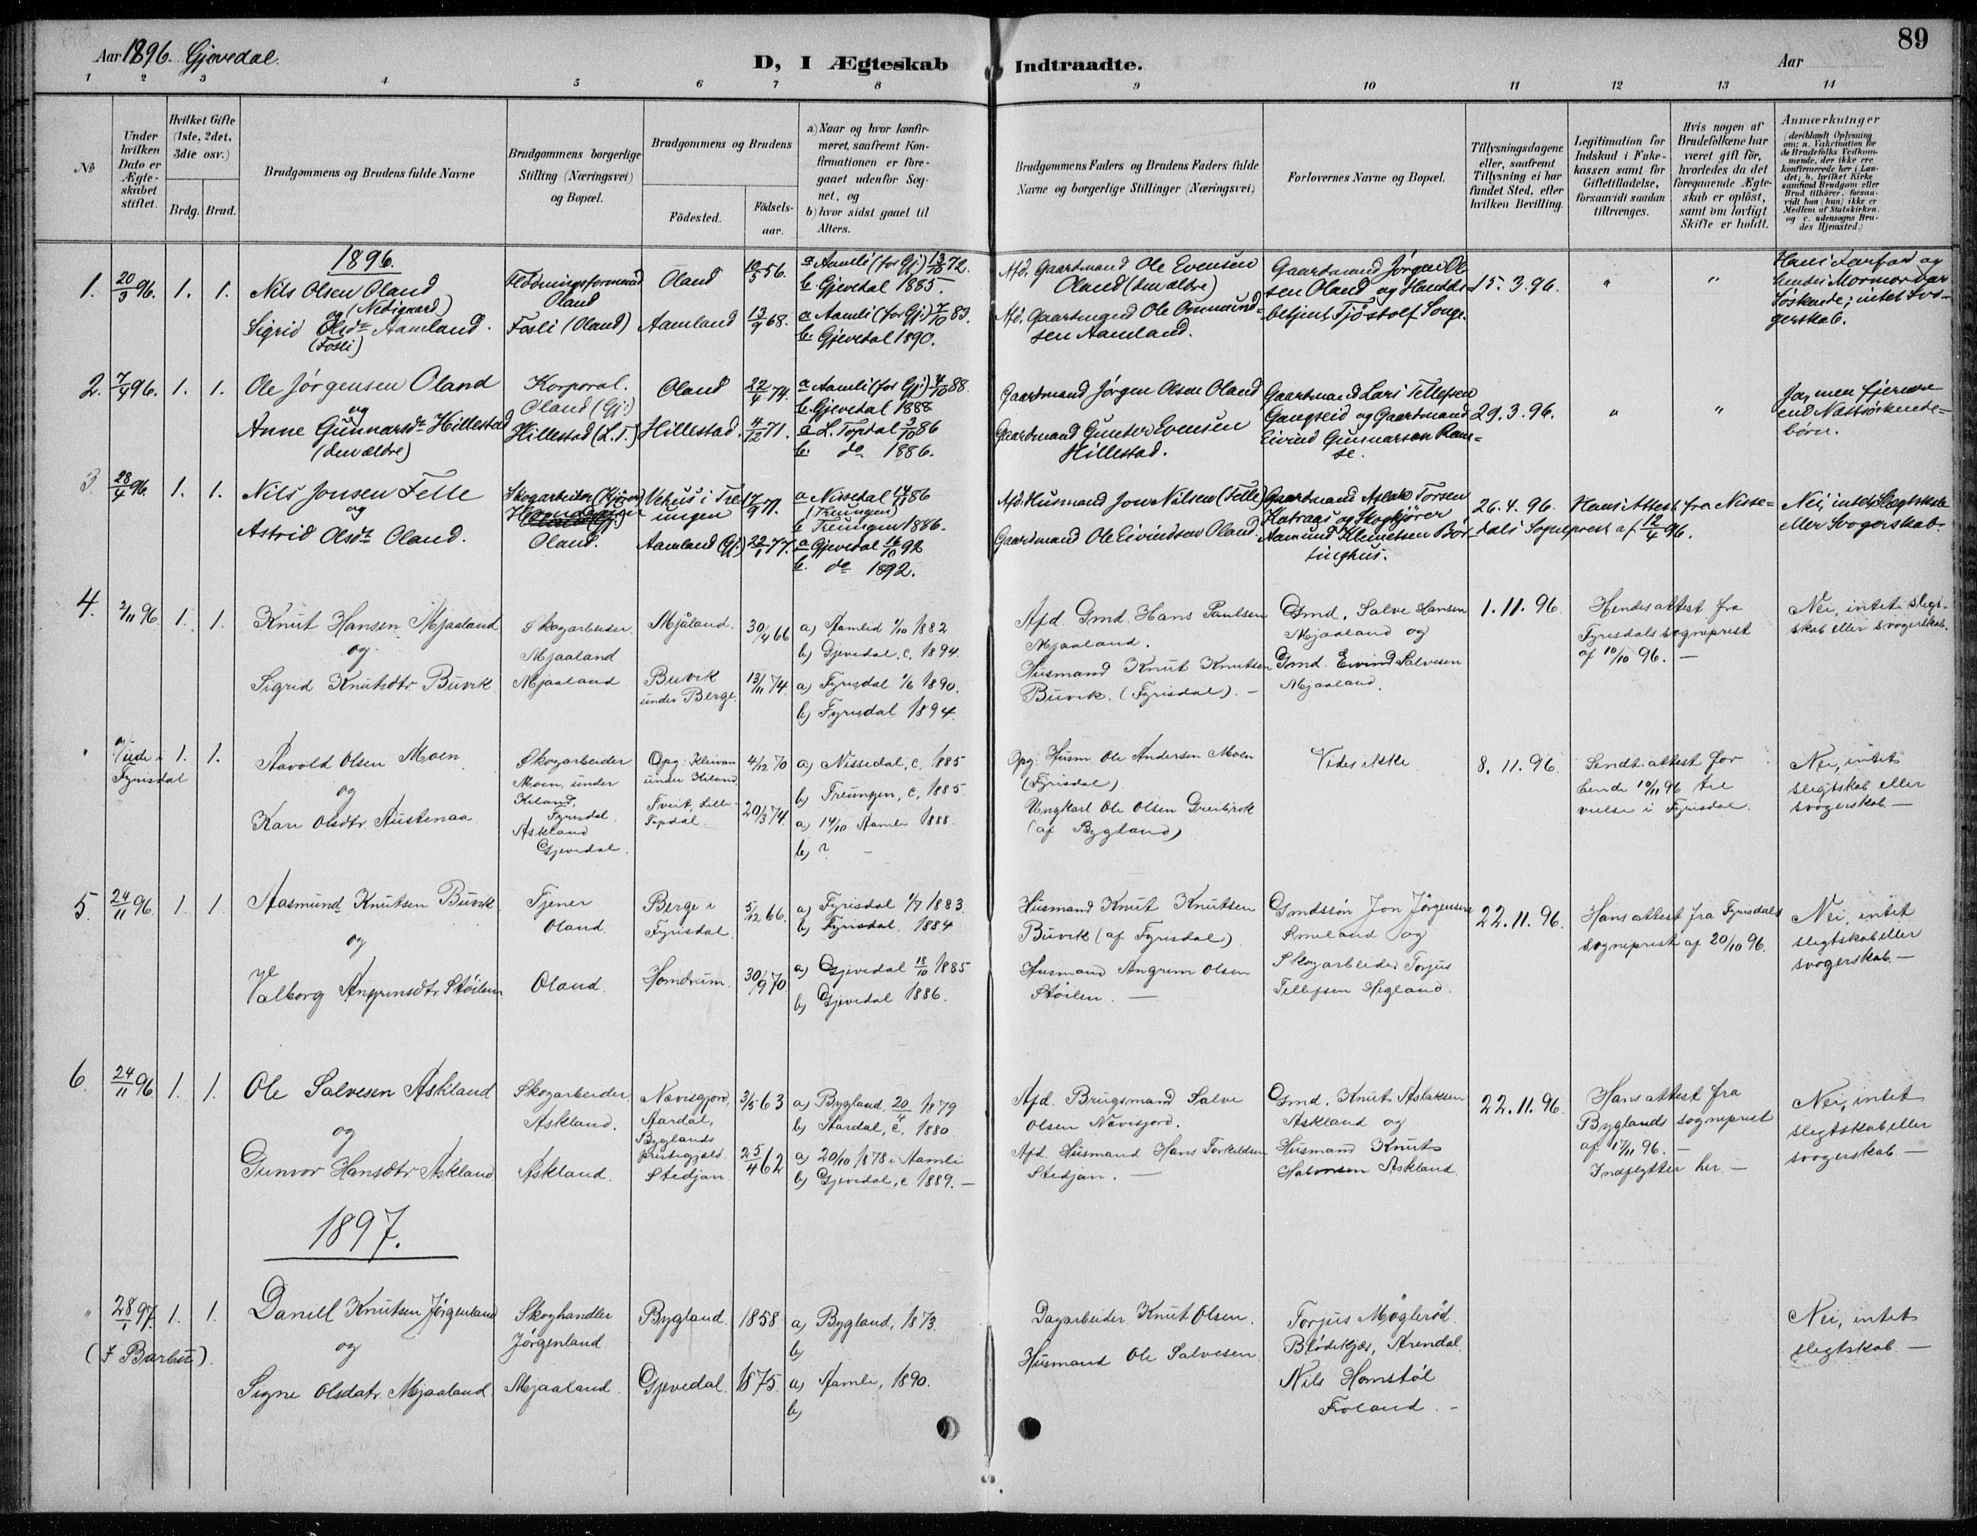 Aar 1896. Gjøvedal.
D, I Ægteskab Indtraadte.
Aar
89
1 2 3 4 5 6 7 8 9 10 11 12 13 14
No
Under hvilken Dato er Ægteskabet stiftet.
Hvilket Gifte (1ste, 2det, 3die osv.)
Brdg. Brud.
Brudgommens og Brudens fulde Navne
Brudgommens borgerlige Stilling (Næringsvei) og Bopæl.
Brudgommens og Brudens
Födested. Födsels-aar.
a) Naar og hvor konfirmeret, saafremt Konfirmationen er foregaaet udenfor Sognet, og
b) hvor sidst gaaet til Alters.
Brudgommens Faders og Brudens Faders fulde Navne og borgerlige Stillinger (Næringsvei)
Forlovernes Navne og Bopæl.
Tillysningsdagene eller, saafremt Tillysning ei har fundet Sted, efter hvilken Bevilling.
Legitimation for Indskud i Enkekassen samt for Giftetilladelse, forsaavidt saadan tiltrænges.
Hvis nogen af Brudefolkene har været gift før, hvorledes da det foregaaende Ægteskab er oplöst, samt om lovligt Skifte er holdt.
Anmærkninger
1896.
1. 20/3 96. 1. 1.
Nils Olsen Oland
(Nedigaard)
og
Sigrid Olsdr Aamland.
(Fosli)
Flødningsformand
Oland
Fosli (Oland)
Oland 10/5 56.
Aamland 13/9 68.
a Aamli (for Gj.) 13/10 72.
b. Gjevedal 1885.
a Aamli (for Gj.) 7/10 83.
b. Gjevedal 1890.
Afd. Gaardmand Ole Evensen
Oland (den ældre)
Afd. Gaardmand Ole Ommundsen Aamland.
Gaardmand Jørgen Olsen Oland og Handelsbetjent Tjöstolf Songe.
15.3.96.
" "
Hans Farfar og
hendes Mormor var
Søskende; intet Svogerskab.
2. 7/4 96. 1. 1.
Ole Jørgensen Oland
og
Anne Gunnarsdr Hillestad
(den ældre)
Korporal.
Oland (Gj.)
Hillestad (L.T.)
Oland 22/4 74.
Hillestad. 4/12 71.
a Aamli (for Gj.) 4/10 88.
b. Gjevedal 1888
a L. Topdal 3/10 86
b. do 1886.
Gaardmand Jørgen Olsen Oland
Gaardmand Gunder Evensen
Hillestad.
Gaardmand Lars Tellefsen
Gangseid og Gaardmand
Eivind Gunnarson Ramse.
29.3.96.
" "
Ja, men fjernere
end Næstsöskendebörn.
3. 28/4 96. 1. 1.
Nils Jonsen Felle
og
Astrid Olsdr Oland.
Skogarbeider
Oland.
Vehus i Treungen 17/9 71.
Aamland (Gj.) 22/7 77.
a Nissedal 86
(Treungen)
b Treungen 1886.
a Gjevedal 16/10 92
b. do 1892.
Afd. Husmand Jon Nilsen (Felle)
Gaardmand Ole Eivindsen Oland.
Gaardmand Aslak Torsen
Katrags og Skogkjører
Aamund Klemetsen Börtinghus.
26.4.96.
Hans Attest fra Nissedals Sogneprest af 12/4 96.
Nei, intet Slegtskab
eller Svogerskab.
4. 2/11 96 1. 1.
Knut Hansen Mjaaland
og
Sigrid Knutsdtr Buvik
Skogarbeider
Mjaaland
Mjaaland
Mjåland. 30/4 66
Buvik
under Berge. 13/11 74
a) Aamlid 1/10 1882
b) Gjevedal, c. 1894.
a) Fyrisdal 1/6 1890.
b) Fyrisdal 1894.
Afd. Gmd. Hans Paulsen
Mjaaland.
Husmand Knut Knutsen
Buvik. (Fyrisdal). –
Gmd. Salve Hansen
Mjaaland og
Gmd. Eivind Salvesen
Mjaaland.
1.11.96.
Hendes attest fra
Fyrisdals sogneprest
af 10/10 96. –
Nei, intet slegtskab eller svogerskab.
Viede i
Fyrisdal 1. 1.
Aavold Olsen Moen
og
Kari Olsdtr. Austenaa
Skogarbeider
Moen, under
Kiland,
Fyrisdal.
Askland
Gjevedal.
Opg. Kleivan
under Kiland 4/12 70
Tveit, Lille-
Topdal. 20/3 74.
a) Nissedal, c. 1885
b) Treungen, c. 1885.
a) 14/10 Aamli 1888.
b) ? –
Opg. Husm. Ole Andersen Moen
(Fyrisdal)
Ungkarl Ole Olsen Greibrok
(af Bygland)
Vides ikke
8.11.96.
Sendt attest for
hende 10/11 96 til
vielse i Fyrisdal.
Nei, intet
slegtskab eller
svogerskab –
5. 24/11 96 1. 1
Aasmund Knutsen Buvik
og
Valborg Angrimsdtr. Støilen
Tjener
Oland.
Oland.
Berge i
Fyrisdal. 5/12 66
Homdrum. 30/9 70
a) Fyrisdal 1/7 1883.
b) Fyrisdal. 1884
a) Gjevedal 18/10 1885
b) Gjevedal 1886.
Husmand Knut Knutsen
Buvik (af Fyrisdal).
Husmand Angrim Olsen
Støilen. –
Gmdssön Jon Jørgensen
og
Skogarbeider Torjus
Tellefsen Hegland.
22.11.96.
Hans attest fra Fyrisdals
sogneprest af 20/10 96.
Nei, intet
slegtskab eller
svogerskab –
6. 24/11 96 1. 1.
Ole Salvesen Askland
og
Gunvor Hansdtr. Askland
Skogarbeider
Askland.
Askland.
Nævisgjord,
Aardal,
Byglands
Præstegjæld. 3/5 63
Stedjan. 25/4 62
a) Bygland, 20/4 1879
b) Aardal, c. 1880.
a) 20/10 1878 i Aamli
b) Gjevedal, c 1889. –
Afd. Brugsmand Salve
Olsen Nævisjord.
Afd. Husmand Hans Torkildsen
Stedjan. –
Gmd. Knut Aslaksen
Askland og
Husmand Knut
Halvorsen Askland.
22.11.96.
Hans attest fra
Byglands sogneprest
af 17/11 96. –
Indflytter her. –
Nei, intet
slegtskab eller
svogerskab –
1897.
" 28/1 97. 1. 1.
(I Barbu).
Daniell Knutsen Jørgenland
og
Signe Olsdatr. Mjaaland
Skoghandler
Jørgenland
Mjaaland.
Bygland. 1858.
Gjevedal. 1875.
a) Bygland, 1873.
b)
a) Aamli, 1890.
b)
Dagarbeider Knut Olsen.
Husmand Ole Salvesen.
Torjus Møglerød
Blødekjær, Arendal.
Nils Homstøl
Froland. –
Nei, intet
slegtskab –